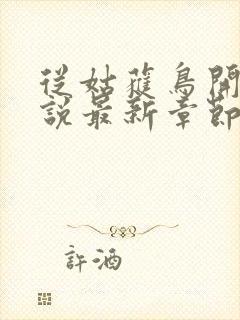 從姑蘿鳥開
說最新章節
許酒